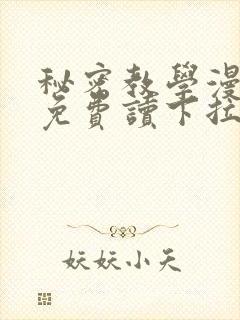 秘密教學漫
免費讀下拉
妖妖小天